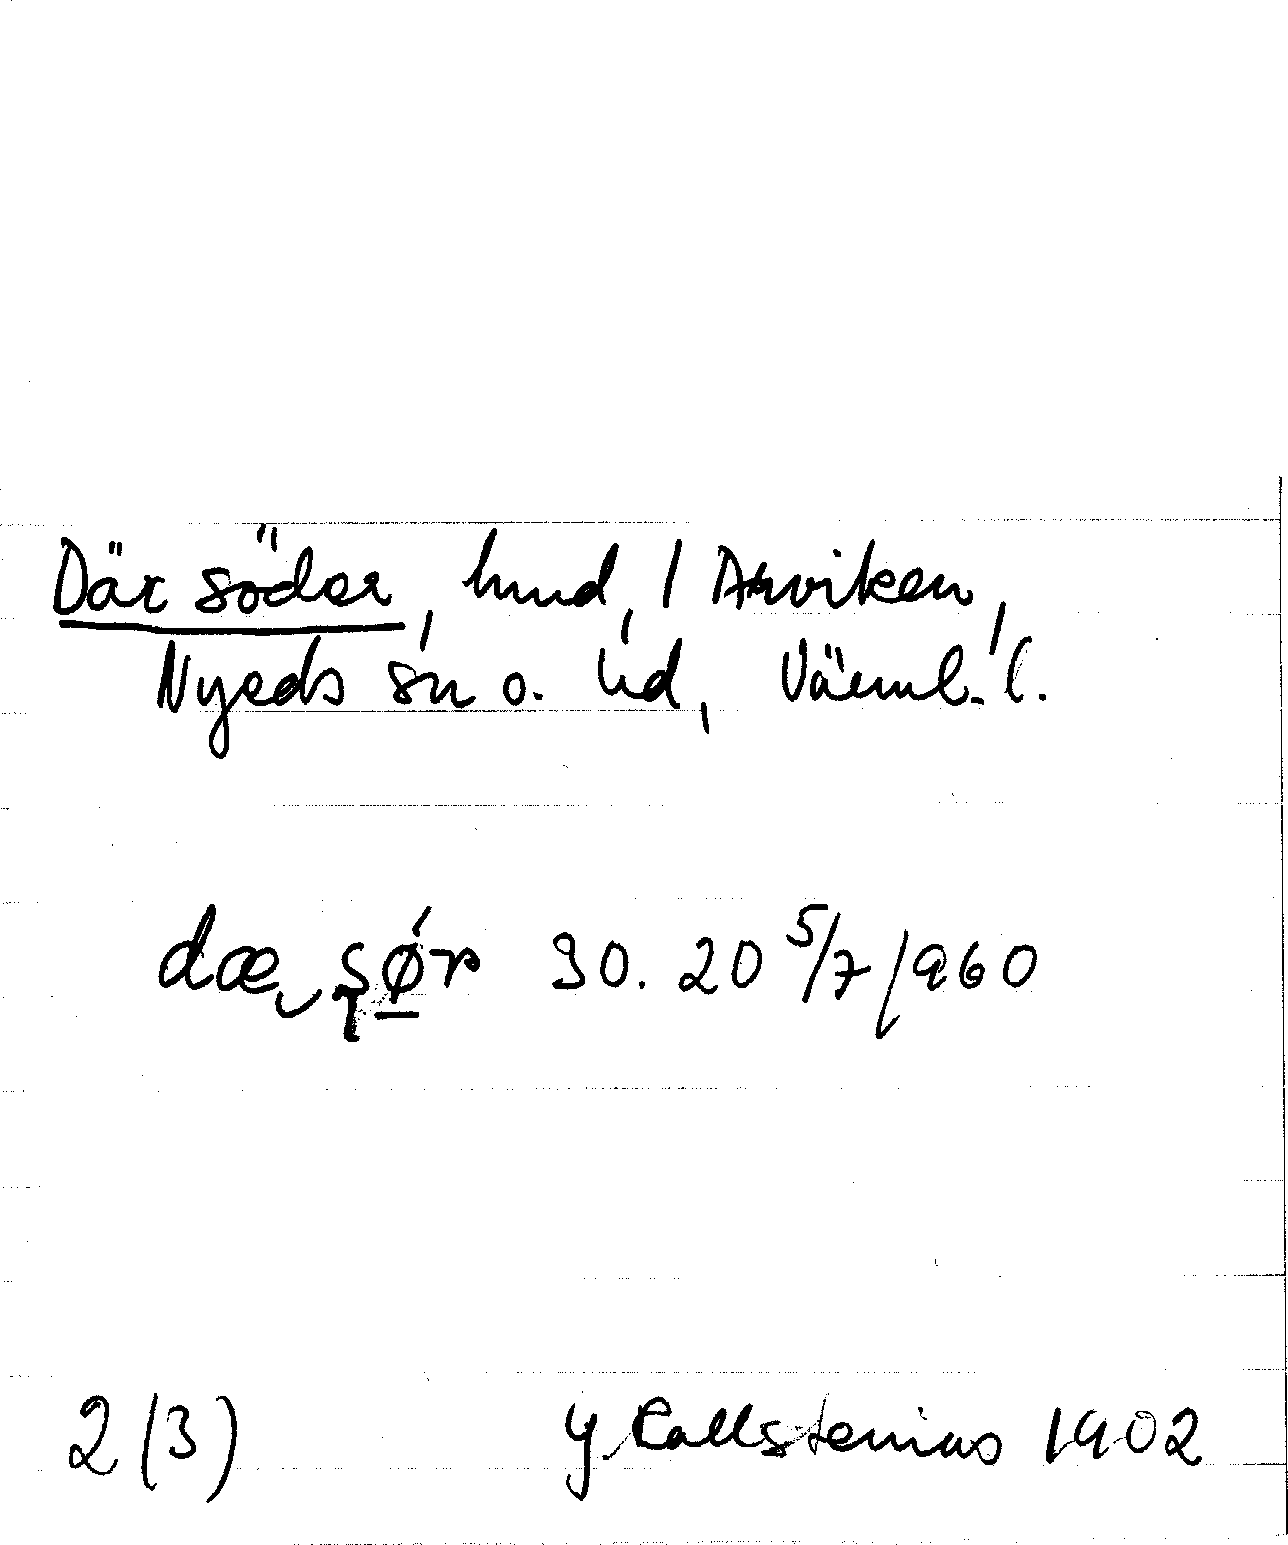 Där söder, hmd, / Arviken,
Nyeds sn o. hd, Värml. l.
dæ sør 30. 20 5/7 1960
2 (3) G. Kallstenius 1902